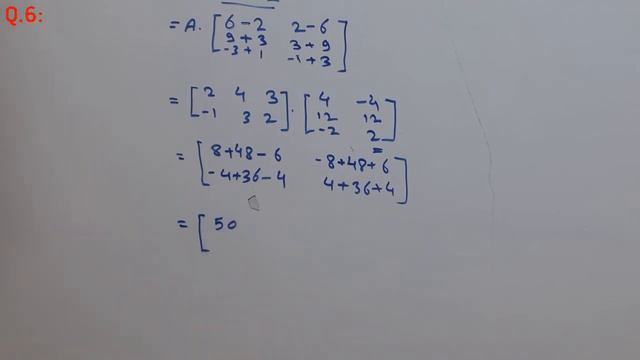 Q.6:
= A. [ 6 - 2 2 - 6
9 + 3 3 + 9
-3 + 1 -1 + 3 ]
= [ 2 4 3
-1 3 2 ] . [ 4 -4
12 12
-2 2 ]
= [ 8+48-6 -8+48+6
-4+36-4 4+36+4 ]
= [ 50